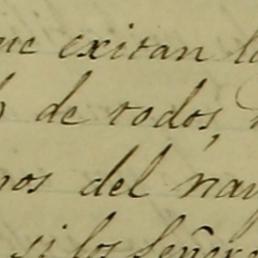 que exitan l
de todos,
nos del nav
si los Señores